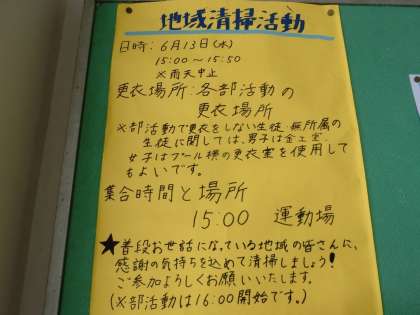 地域清掃活動
日時：6月13日（水）
15:00～15:50
※雨天中止
更衣場所：各部活動の
更衣場所
※部活動で更衣をしない生徒・無所属の
生徒に関しては、男子は金工室、
女子はプール横の更衣室を使用して
もよいです。
集合時間と場所
15:00 運動場
★普段お世話になっている地域の皆さんに、
感謝の気持ちを込めて清掃しましょう！
ご参加よろしくお願いいたします。
（※部活動は16:00開始です。）